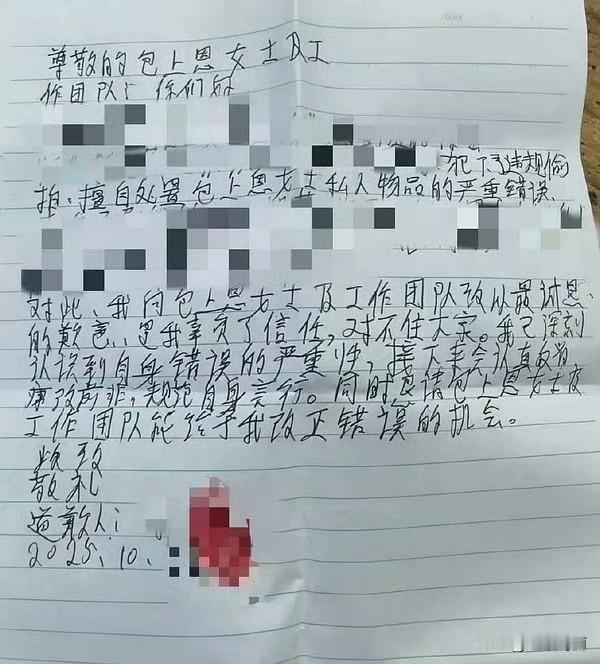 尊敬的包上恩女士及工
作团队：你们好
犯下了违规偷
拍、擅自处置包上恩女士私人物品的严重错误、
对此、我向包上恩女士及工作团队致以最诚恳
的歉意、是我辜负了信任，对不住大家。我已深刻
认识到自身错误的严重性，接下来会认真反省
痛改前非，规范自身言行。同时恳请包上恩女士及
工作团队能给予我改正错误的机会。
此致
敬礼
道歉人：
2025.10.